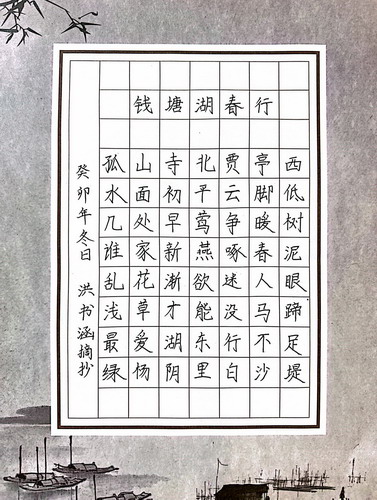 钱塘湖春行
孤山寺北贾亭西
水面初平云脚低
几处早莺争暖树
谁家新燕啄春泥
乱花渐欲迷人眼
浅草才能没马蹄
最爱湖东行不足
绿杨阴里白沙堤
癸卯年冬日 洪书涵摘抄